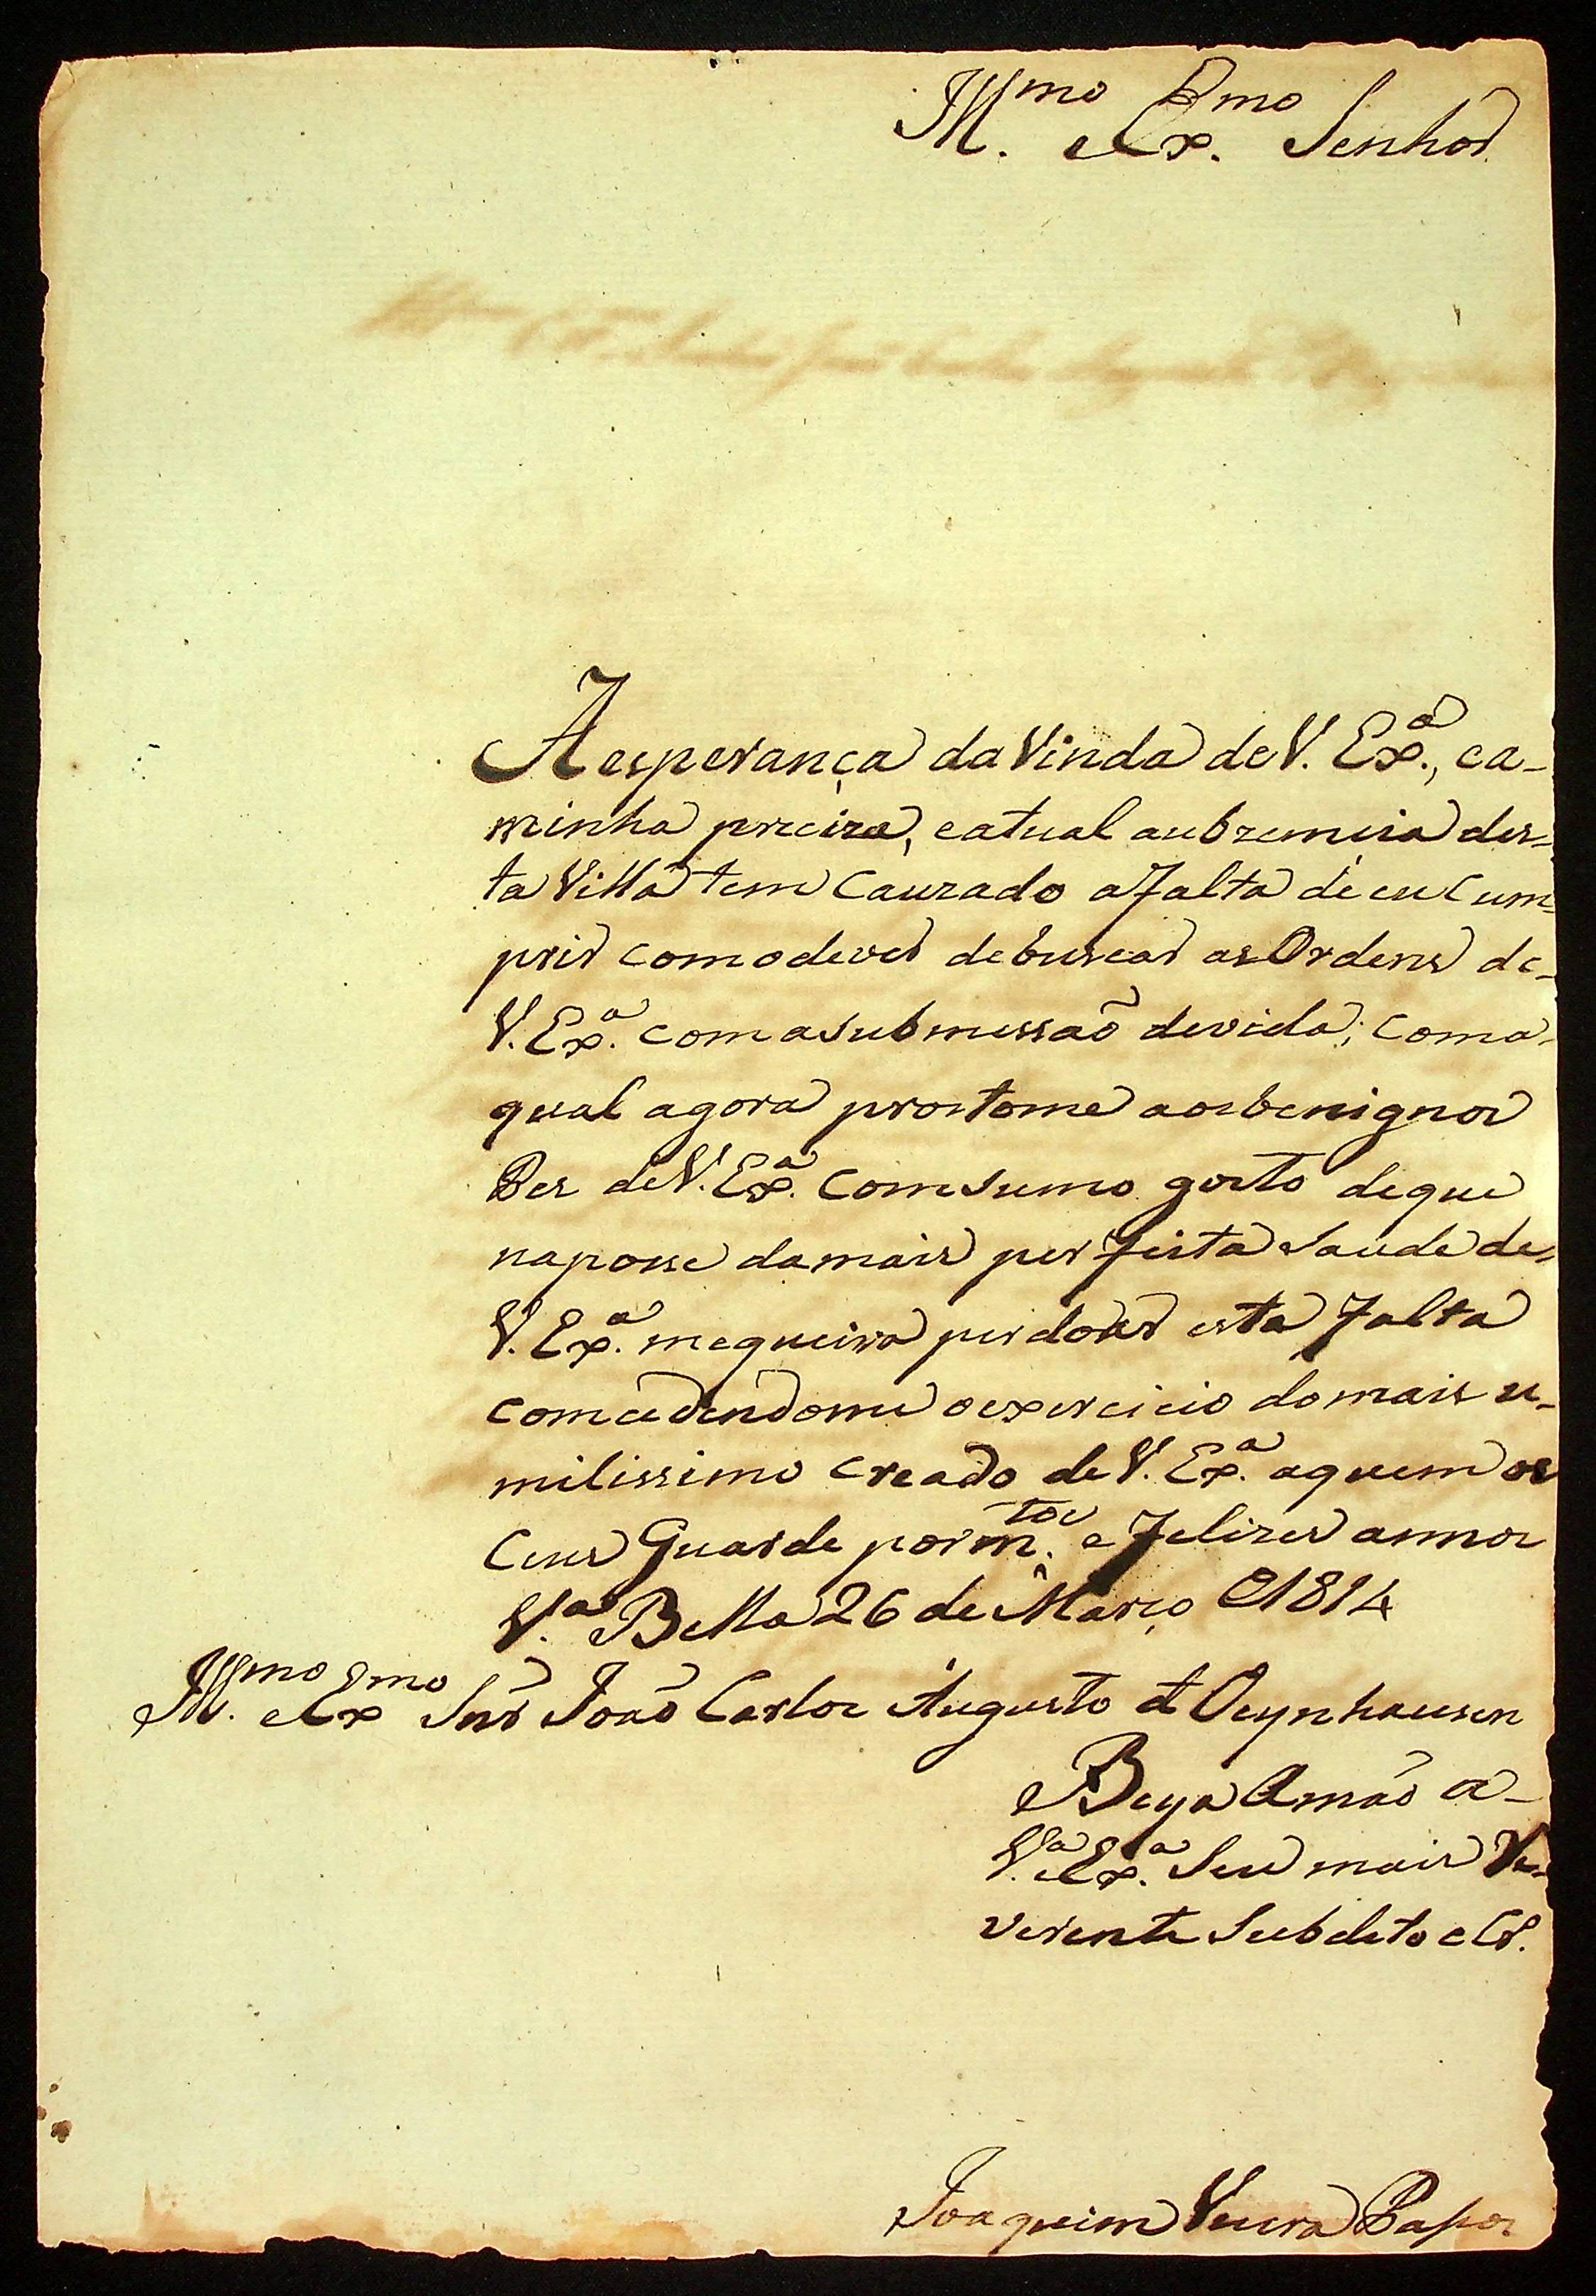 Ill.mo e Ex.mo Senhor
A esperança da Vinda de V. Ex.a, ea-
minha preciza, e atual auzemcia des-
ta Villa tem Cauzado afalta de eu Cum-
prir como dever de buscar as Ordens de-
V. Ex.a com a Submessaõ devida; Coma
qual agora prostome aos benignos
Pes de V. Ex.a Com Sumo gosto de que
na posse da mais perfeita Saude de
V. Ex.a me queira perdoar esta falta
comcedendome o exercicio do mais u-
milissimo creado de V. Ex.a a quem os
Ceus Guarde por m.tos e felizes annos
V.a Bella 26 de Março 1814
Ill.mo e Ex.mo Snr João Carlos Augusto d' Oeynhausen
Beya Amaõ a-
V.a Ex.a Seu mais Re-
verente Subdito e Cr.
Joaquim Passos